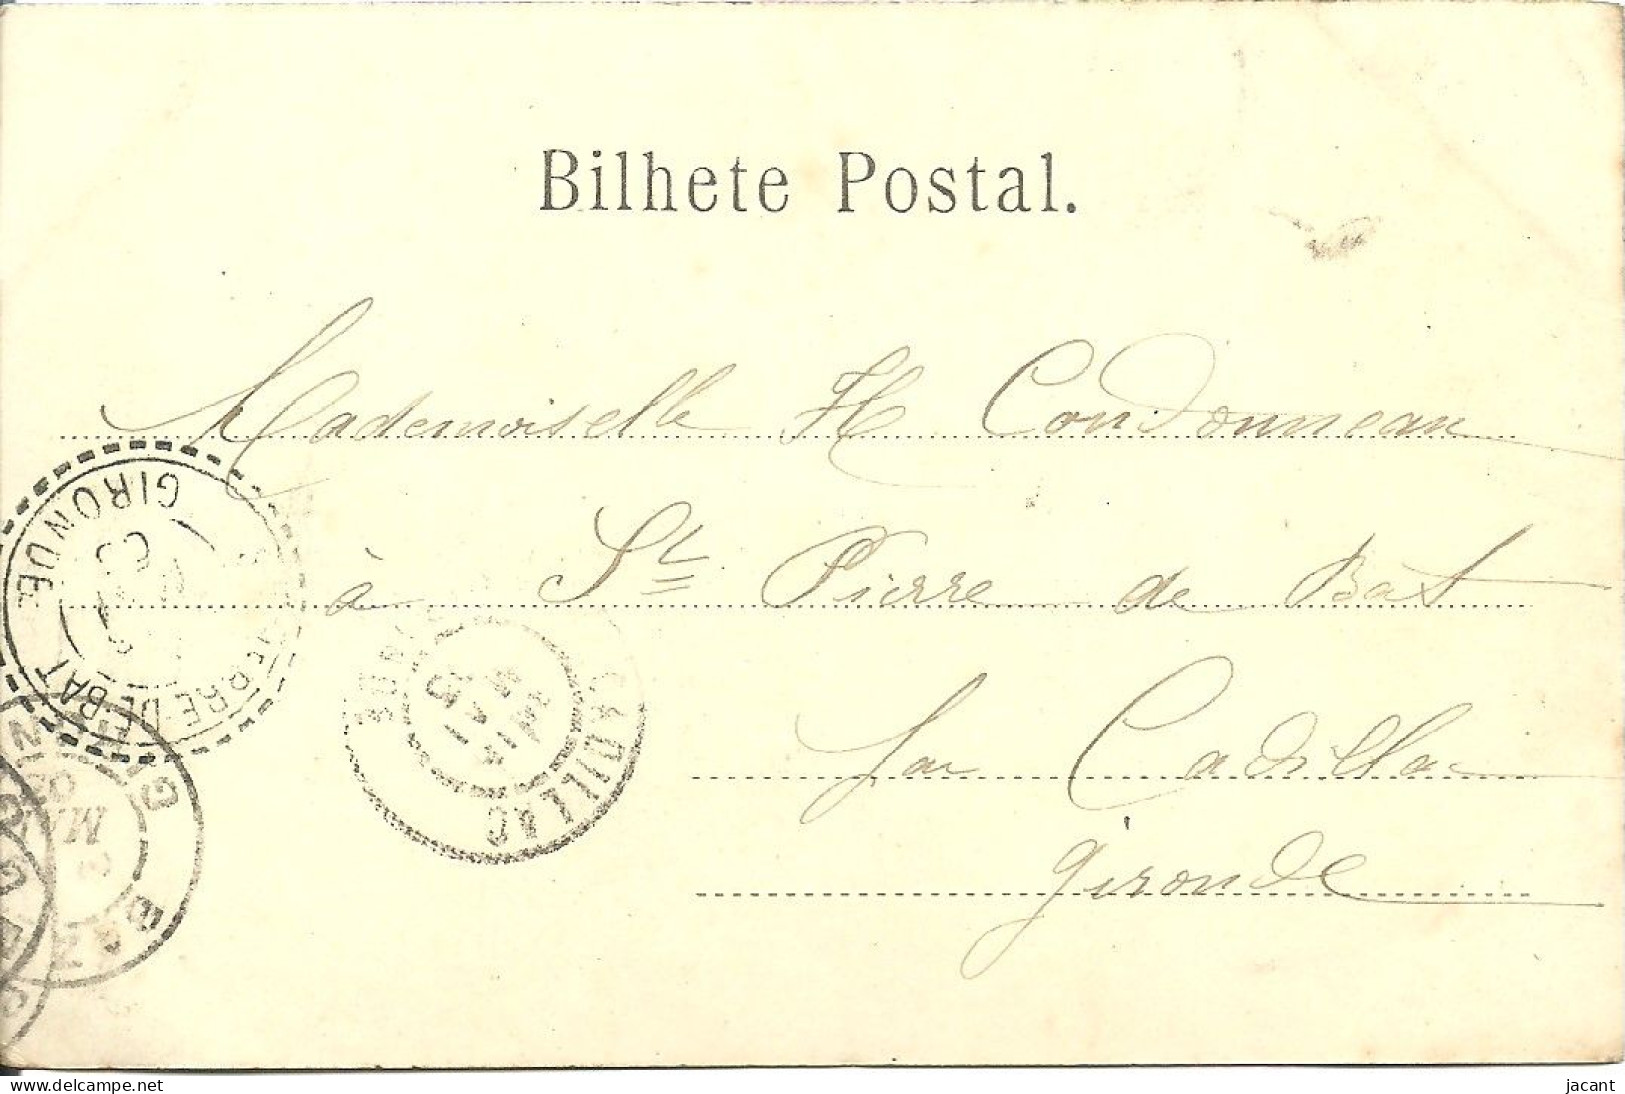 Bilhete Postal.
Mademoiselle H Condonneau
à St Pierre de Bat
par Cadillac
Gironde
GIRONDE
PIERRE-DE-BAT
CADILLAC
jacant